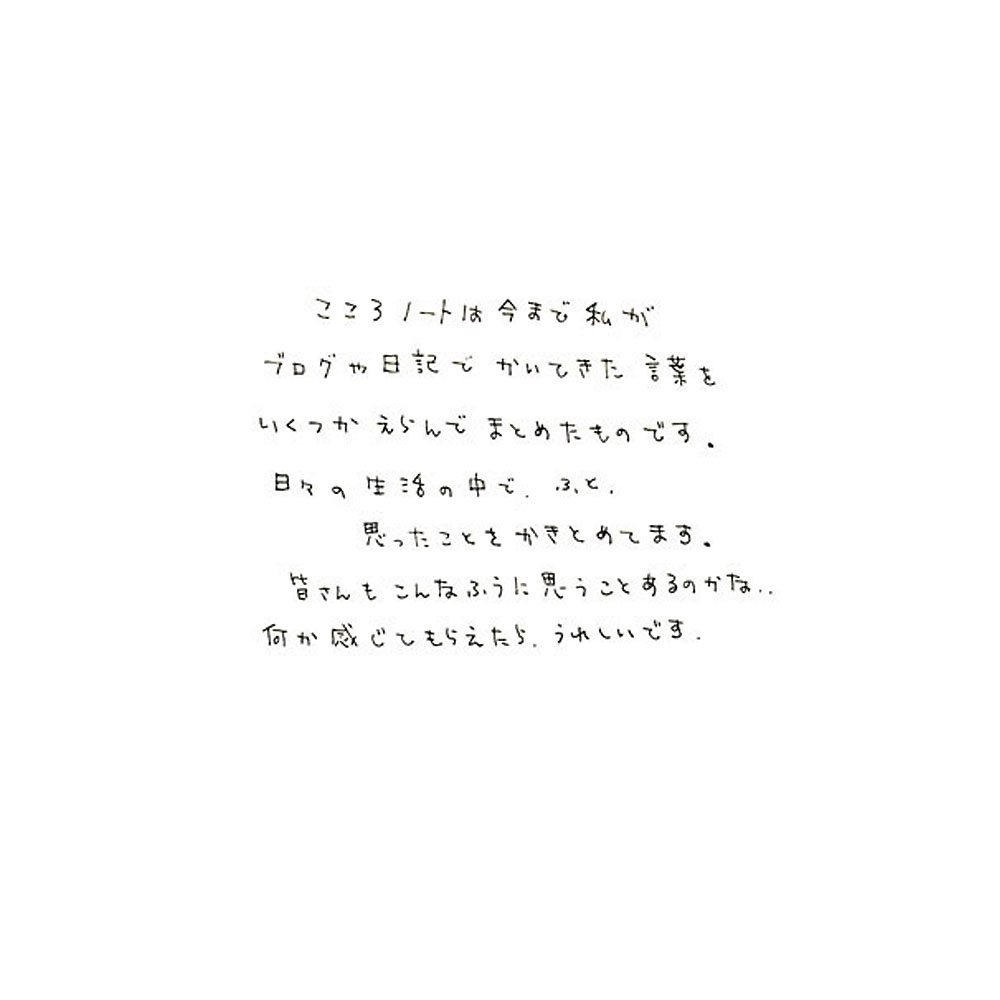 こころノートは今まで私が
ブログや日記でかいてきた言葉を
いくつかえらんでまとめたものです。
日々の生活の中で、ふと、
思ったことをかきとめてます。
皆さんもこんなふうに思うことあるのかな..
何か感じてもらえたら、うれしいです.